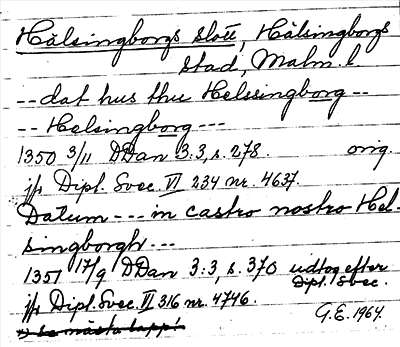 Hälsingborgs slott, Hälsingborgs
stad, Malm. l
-- dat hus thu Helssingborg --
-- Helsingborg ---
1350 3/11 DDan 3:3, s. 278. orig.
jfr Dipl. Svec. VI 234 nr. 4637.
Datum --- in castro nostro Hel-
singborgh ---
1351 17/9 DDan 3:3, s. 370 udtog efter
Dipl. Svec.
jfr Dipl. Svec. VI 316 nr. 4746.
G.E. 1964.
se nästa lapp!